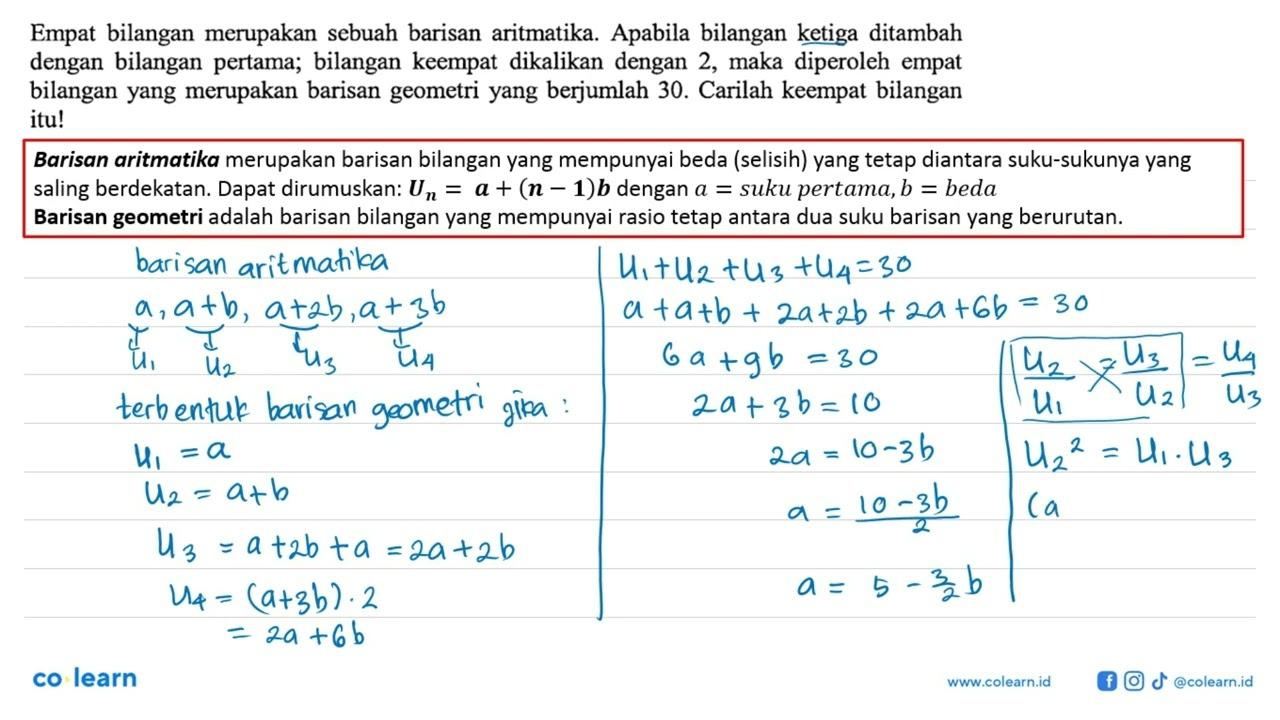 Empat bilangan merupakan sebuah barisan aritmatika. Apabila bilangan ketiga ditambah
dengan bilangan pertama; bilangan keempat dikalikan dengan 2, maka diperoleh empat
bilangan yang merupakan barisan geometri yang berjumlah 30. Carilah keempat bilangan
itu!
Barisan aritmatika merupakan barisan bilangan yang mempunyai beda (selisih) yang tetap diantara suku-sukunya yang
saling berdekatan. Dapat dirumuskan: Uₙ = a + (n − 1)b dengan a = suku pertama, b = beda
Barisan geometri adalah barisan bilangan yang mempunyai rasio tetap antara dua suku barisan yang berurutan.
barisan aritmatika
a, a+b, a+2b, a+3b
U₁ U₂ U₃ U₄
terbentuk barisan geometri jika :
U₁ = a
U₂ = a+b
U₃ = a+2b+a = 2a+2b
U₄ = (a+3b)·2
= 2a+6b
U₁+U₂+U₃+U₄=30
a+a+b+2a+2b+2a+6b = 30
6a+9b = 30
2a+3b = 10
2a = 10-3b
a = (10-3b)/2
a = 5 - 3/2 b
U₂/U₁ = U₃/U₂ = U₄/U₃
U₂² = U₁·U₃
(a
co learn
www.colearn.id
@colearn.id